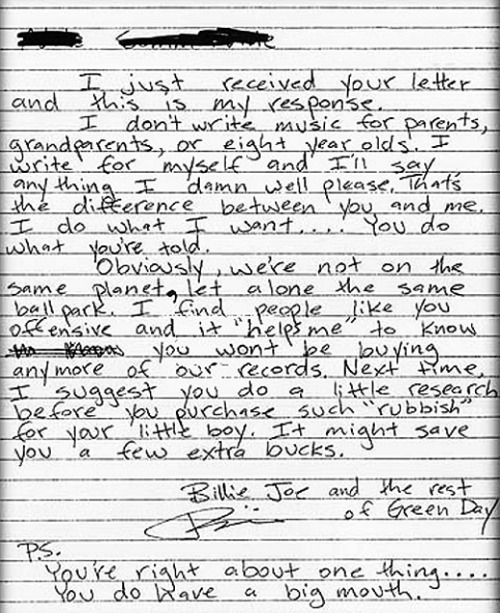 I just received your letter
and this is my response.
I don't write music for parents,
grandparents, or eight year olds. I
write for myself and I'll say
anything I damn well please. That's
the difference between you and me.
I do what I want.... You do
what you're told.
Obviously, we're not on the
same planet, let alone the same
ball park. I find people like you
offensive and it "helps me" to know
you wont be buying
anymore of our records. Next time,
I suggest you do a little research
before you purchase such "rubbish"
for your little boy. It might save
you a few extra bucks.
Billie Joe and the rest
of Green Day
P.S.
You're right about one thing....
You do have a big mouth.